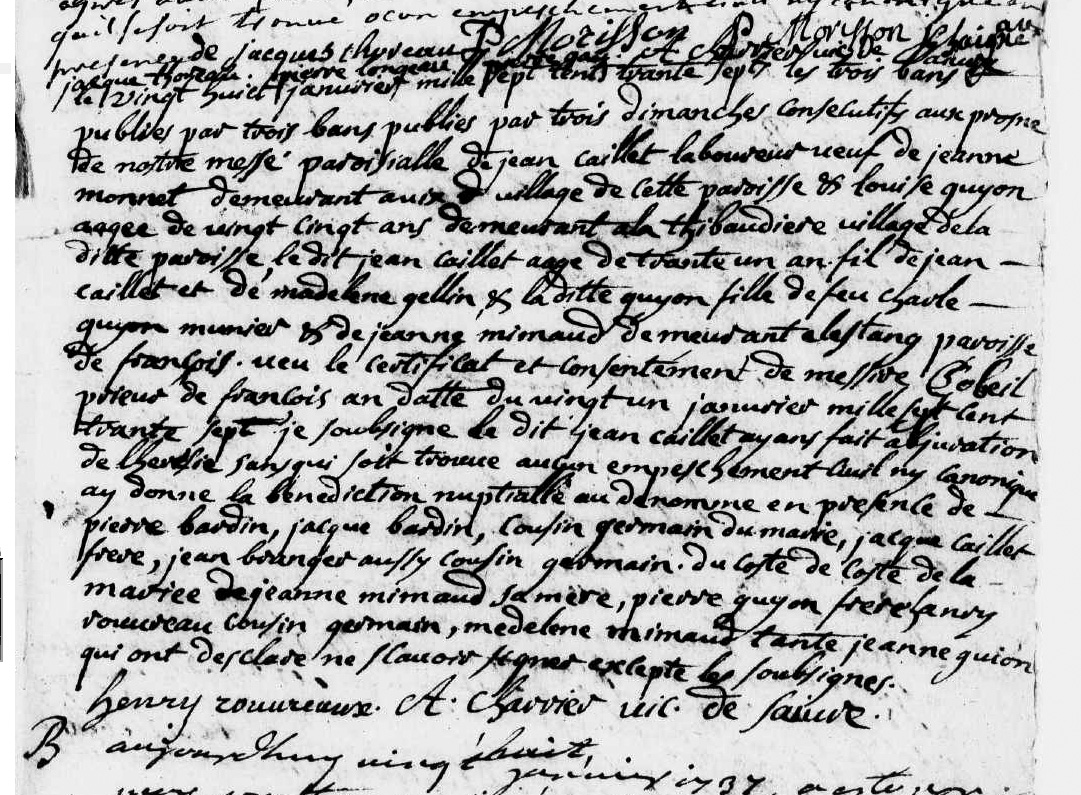 qu'il se soit trouve
presence de jacques thoreau P Morisson P. Morisson
jacque thoreau. pierre A Charrier vic. de Sauvre
le vingt huict janvrier mille sept cent trante sept les trois bans
publies par trois bans publies par trois dimanches consecutifs aux prosne
de nostre messe paroisialle de jean caillet laboureur veuf de jeanne
monnet demeurant aux village de cette paroisse & louise guyon
aagee de vingt cinqt ans demeurant a la thibaudiere village de la
ditte paroisse, le dit jean caillet aage de trante un an. fil de jean
caillet et de madelene gellin & la ditte guyon fille de feu charle
guyon munier & de jeanne mimaud demeurant a lestang paroisse
de françois. veu le certificat et consentement de messire
prieur de francois an datte du vingt un janvrier mille sept cent
trante sept je soubsigne le dit jean caillet ayans fait abjuration
de lheresie sans qui soit trouve aucun empeschement civil ny canonique
ay donne la benediction nuptialle au denomme en presence de
pierre bardin, jacque bardin, cousin germain du marie, jacque caillet
frere, jean branger aussy cousin germain. du coste de coste de la
mariee de jeanne mimaud sa mere, pierre guyon frere, hanry
rouvreau cousin germain, medelene mimaud tante jeanne guion
qui ont desclare ne scavoir signer excepte les soubsignes.
henry rouvreaux. A. Charrier vic. de sauvre.
B aujourdhuy vingt huit
janvier 1737